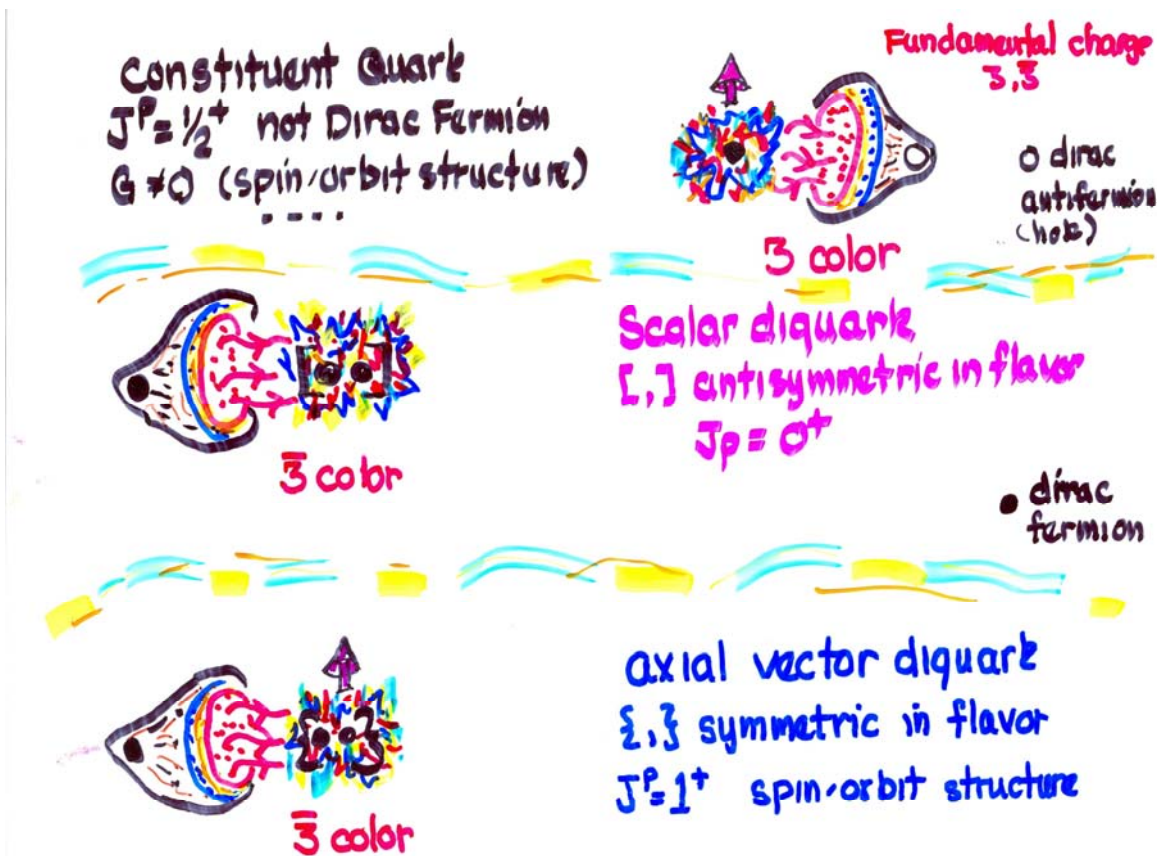 Constituent Quark
J^P = 1/2^+ not Dirac Fermion
G ≠ 0 (spin-orbit structure)
....
Fundamental charge
3, 3̅
o dirac
antifermion
(hole)
3 color
Scalar diquark
[,] antisymmetric in flavor
Jp = 0^+
3̅ color
• dirac
fermion
axial vector diquark
{,} symmetric in flavor
J^P = 1^+ spin-orbit structure
3̅ color